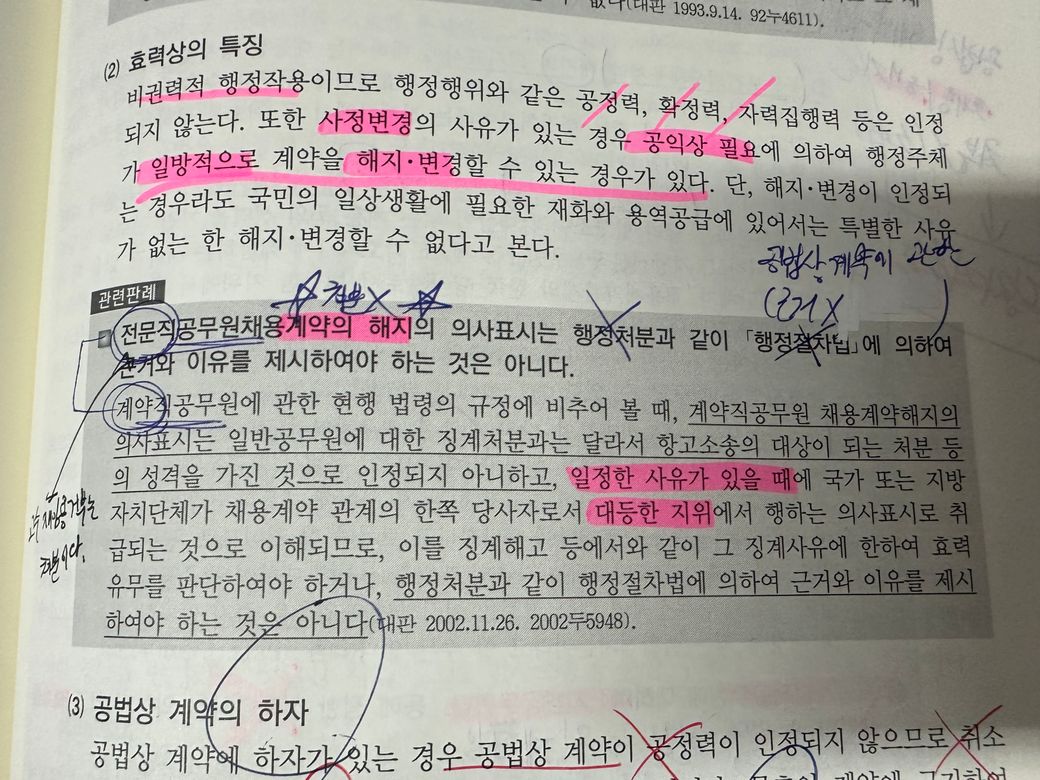 없다(대판 1993.9.14. 92누4611).
(2) 효력상의 특징
비권력적 행정작용이므로 행정행위와 같은 공정력, 확정력, 자력집행력 등은 인정
되지 않는다. 또한 사정변경의 사유가 있는 경우 공익상 필요에 의하여 행정주체
가 일방적으로 계약을 해지·변경할 수 있는 경우가 있다. 단, 해지·변경이 인정되
는 경우라도 국민의 일상생활에 필요한 재화와 용역공급에 있어서는 특별한 사유
가 없는 한 해지·변경할 수 없다고 본다.
공법상 계약에 관한
(근거 X )
관련판례
처분 X
전문직공무원채용계약의 해지의 의사표시는 행정처분과 같이 「행정절차법」에 의하여
근거와 이유를 제시하여야 하는 것은 아니다.
계약직공무원에 관한 현행 법령의 규정에 비추어 볼 때, 계약직공무원 채용계약해지의
의사표시는 일반공무원에 대한 징계처분과는 달라서 항고소송의 대상이 되는 처분 등
의 성격을 가진 것으로 인정되지 아니하고, 일정한 사유가 있을 때에 국가 또는 지방
자치단체가 채용계약 관계의 한쪽 당사자로서 대등한 지위에서 행하는 의사표시로 취
급되는 것으로 이해되므로, 이를 징계해고 등에서와 같이 그 징계사유에 한하여 효력
유무를 판단하여야 하거나, 행정처분과 같이 행정절차법에 의하여 근거와 이유를 제시
하여야 하는 것은 아니다(대판 2002.11.26. 2002두5948).
처분이다.
(3) 공법상 계약의 하자
공법상 계약에 하자가 있는 경우 공법상 계약이 공정력이 인정되지 않으므로 취소